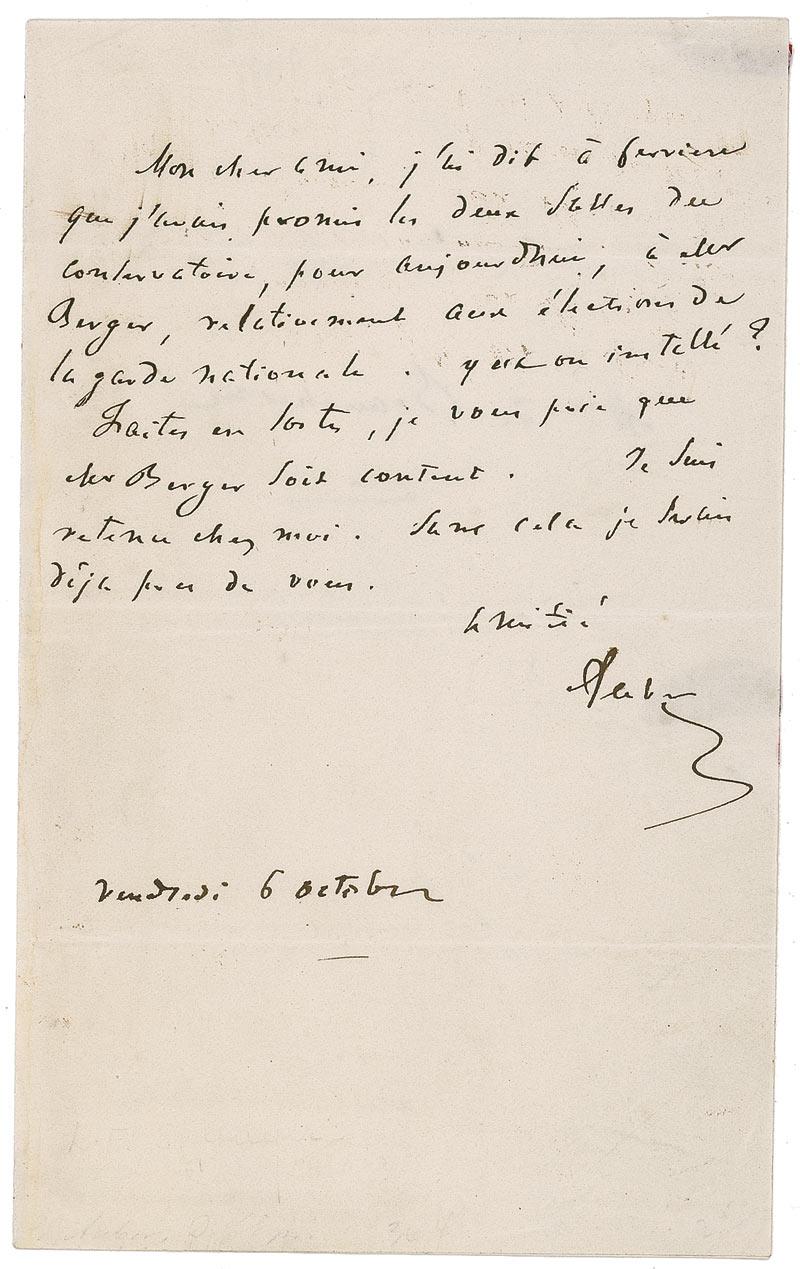 Mon cher ami, j'ai dit à ferriere
que j'avais promis les deux salles du
conservatoire, pour aujourd'hui, à Mr
Berger, relativement aux élections de
la garde nationale. y est on installé ?
Faites en sorte, je vous prie que
Mr Berger soit content. Je suis
retenu chez moi. Sans cela je serais
déjà près de vous.
amitié
Auber
vendredi 6 octobre